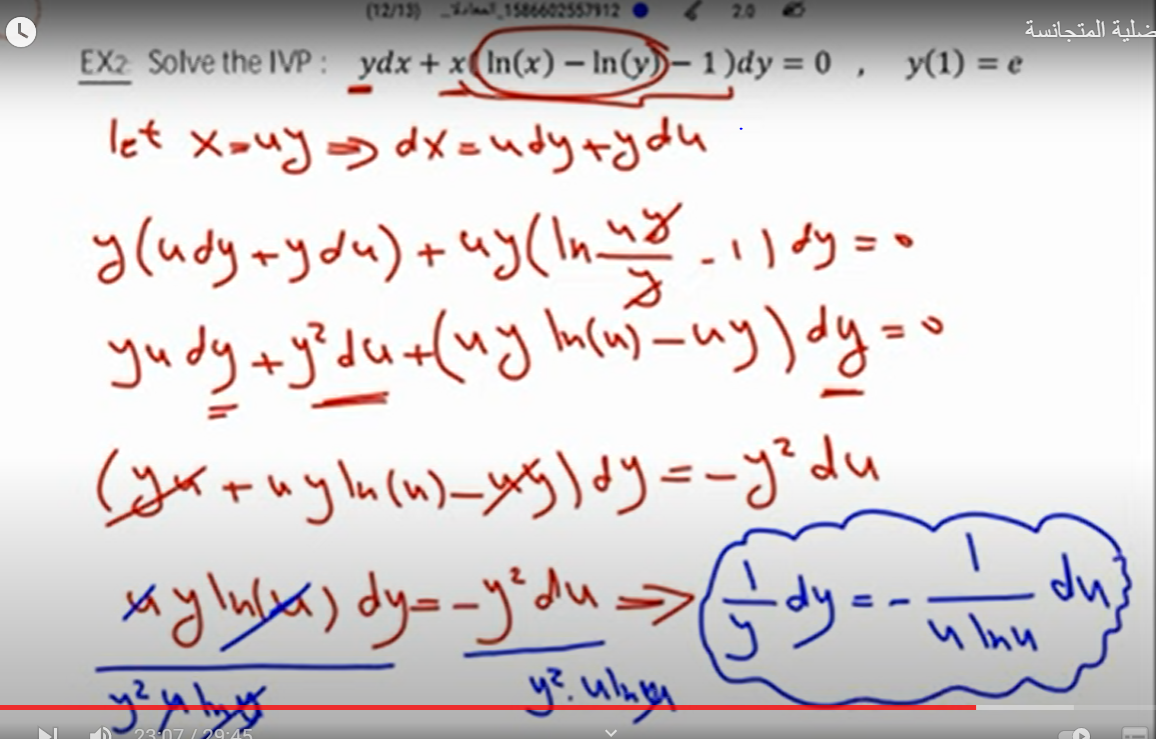 (12/13) _المعادلا_1586602557912 2.0
ضلية المتجانسة
EX2: Solve the IVP : ydx + x(ln(x) − ln(y) − 1)dy = 0 , y(1) = e
let x=uy ⇒ dx=udy+ydu
y(udy+ydu)+uy(ln uy/y -1) dy = 0
yu dy + y² du + (uy ln(u) − uy) dy = 0
(yu + uy ln(u) − uy) dy = −y² du
u y ln(u) dy = −y² du ⇒ 1/y dy = − 1/(u ln u) du
y² u ln u y². u ln u
23:07 / 29:45